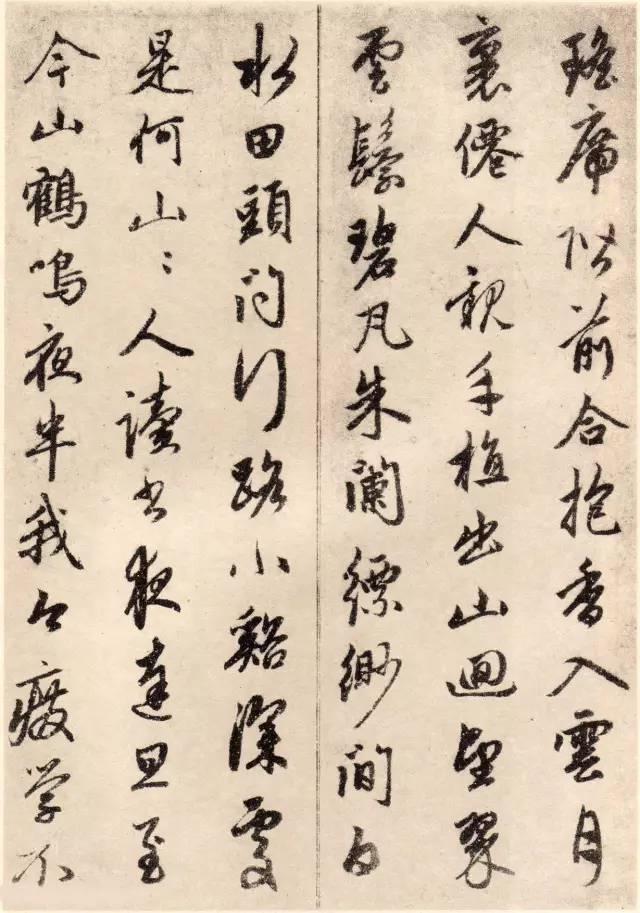 瑤席階前合抱香入雲月
裏僊人親手植出山迴望翠
雲鬟碧瓦朱闌縹緲間白
水田頭問行路小谿深處
是何山〻人讀書夜達旦至
今山鶴鳴夜半我今廢學不